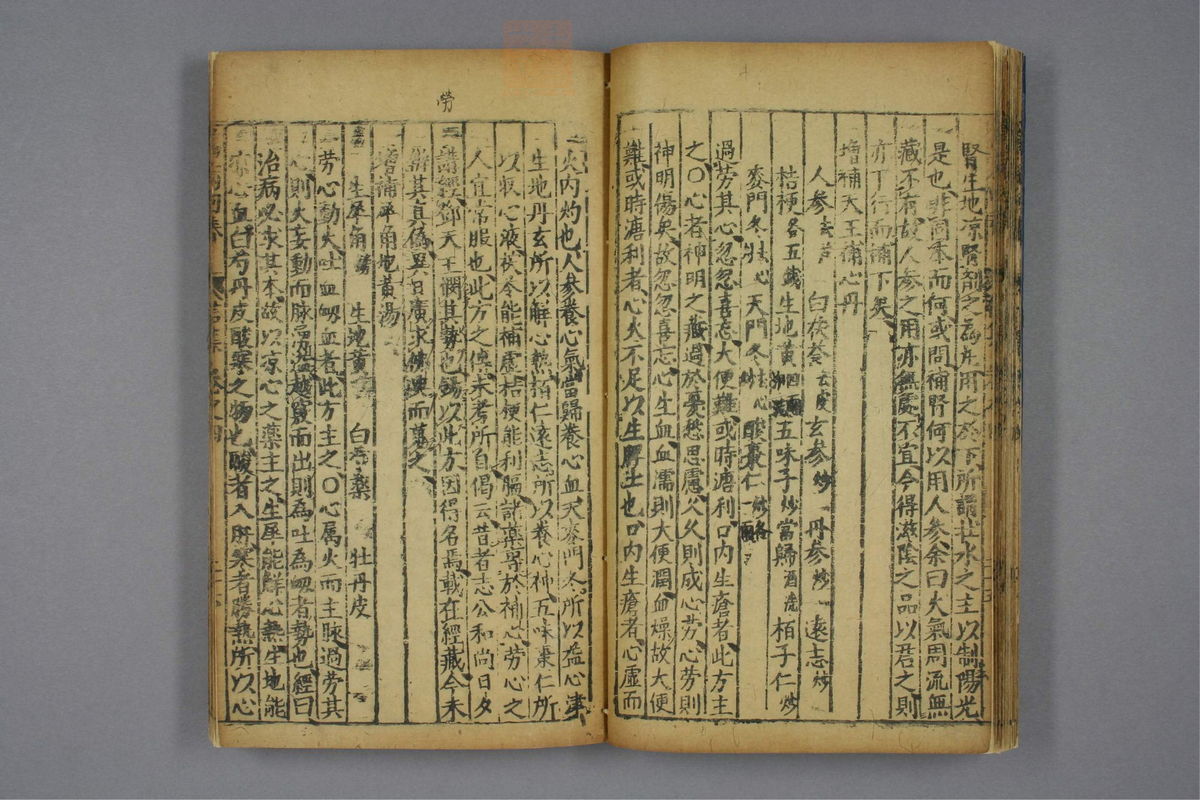 腎生地凉腎劑之為用之於下所謂壯水之主以制陽光
是也非同本而何或問補腎何以用人參余曰大氣周流無
藏不有故人參之用亦無處不宜今得滋陰之品以君之則
亦下行而補下矣
增補天王補心丹
人參去芦 白茯苓去皮玄參炒 丹參炒 遠志炒
桔梗各五錢生地黃四兩酒洗五味子炒當歸酒洗栢子仁炒
麥門冬去心天門冬去心酸棗仁炒各一兩
過勞其心忽忽喜忘大便難或時溏利口內生瘡者此方主
之○心者神明之藏過於憂愁思慮久久則成心勞心勞則
神明傷矣故忽忽喜忘心生血血濡則大便潤血燥故大便
難或時溏利者心火不足以生脾土也口內生瘡者心虛而
火內灼也人參養心氣當歸養心血天麥門冬所以益心津
生地丹玄所以解心熱栢仁遠志所以養心神五味棗仁所
以收心液茯苓能補虛桔梗能利膈諸藥專於補心勞心之
人宜常服也此方之傳未考所自偈云昔者志公和尚日夕
講經鄧天王憫其勞也錫以此方因得名焉載在經藏今未
辨其真偽異日廣求佛典而藁之
增補犀角地黃湯
生犀角鎊 生地黃 白芍藥 牡丹皮
勞心動火吐血衂血者此方主之○心屬火而主脉過勞其
心則火妄動而脉溢越竅而出則為吐為衂者勢也經曰
治病必求其本故以凉心之藥主之生犀能解心熱生地能
凉心血白芍丹皮酸寒之物也酸者入肝寒者勝熱所以心
勞